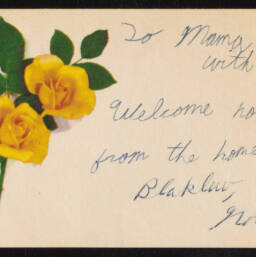 To Mama
with
Welcome
from the home
Blaklw,